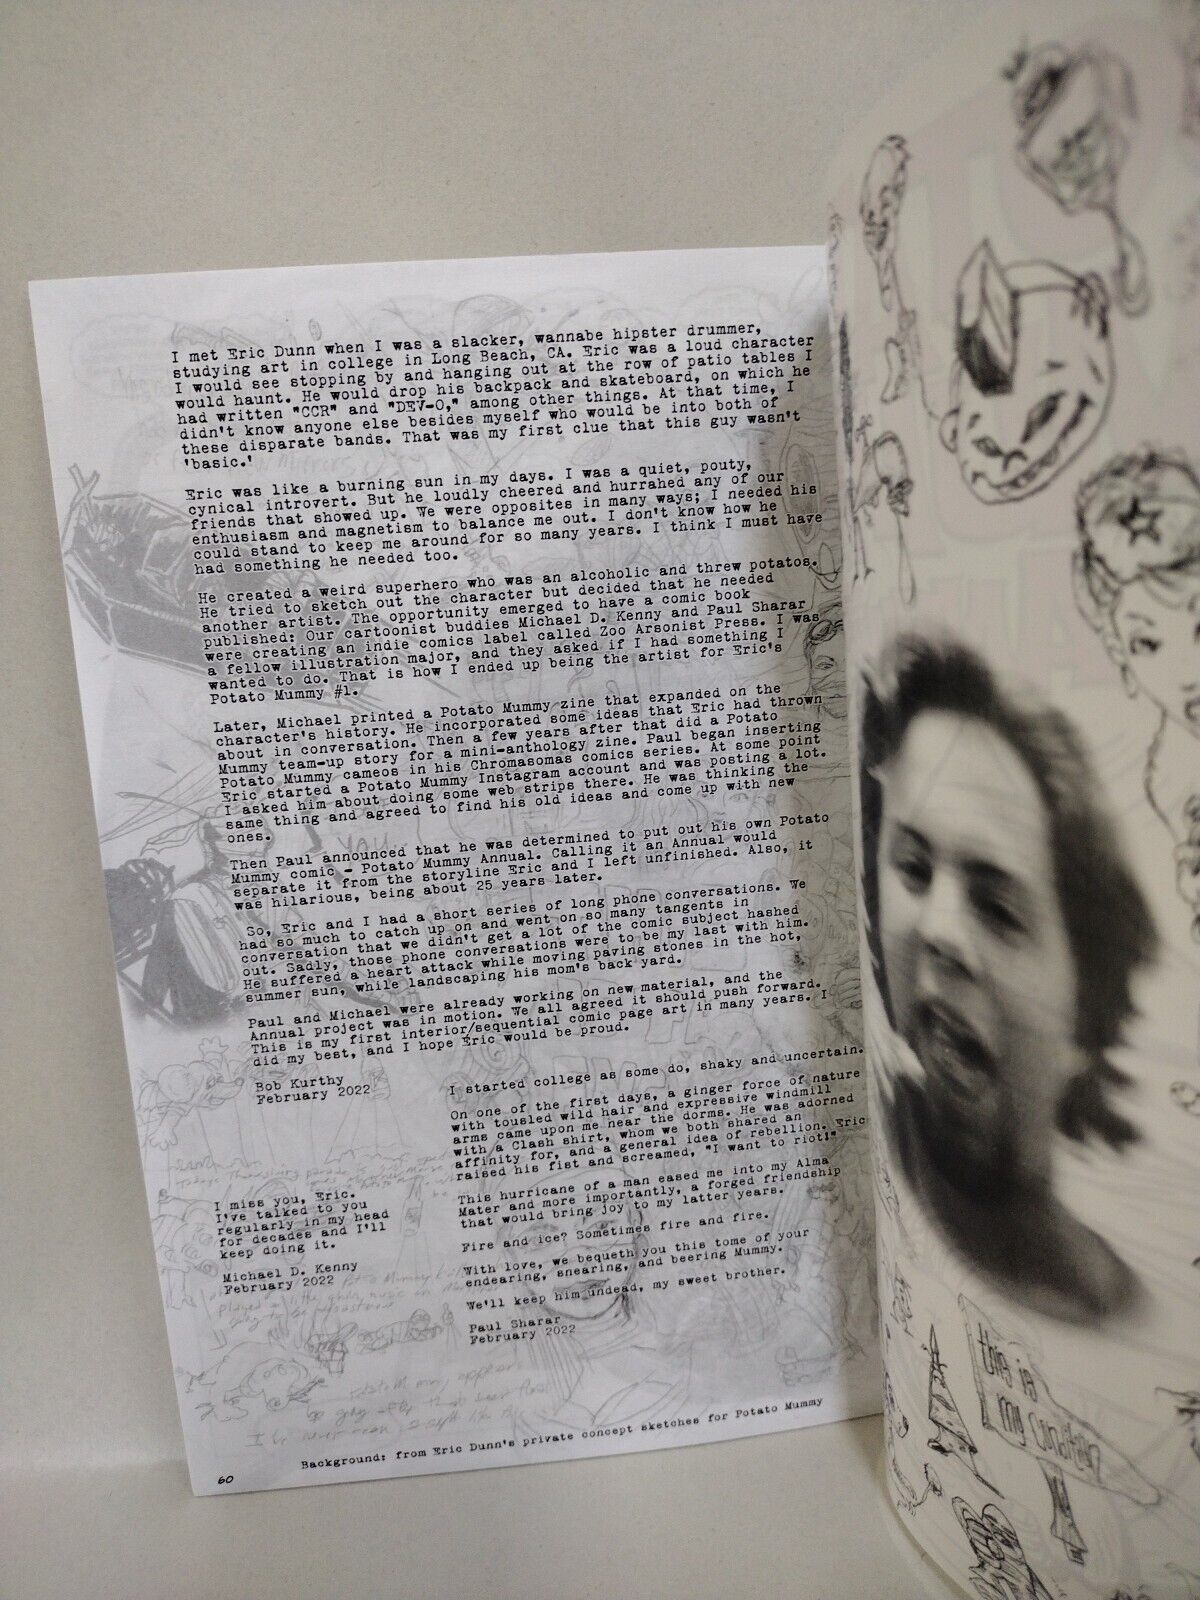 I met Eric Dunn when I was a slacker, wannabe hipster drummer,
studying art in college in Long Beach, CA. Eric was a loud character
I would see stopping by and hanging out at the row of patio tables I
would haunt. He would drop his backpack and skateboard, on which he
had written "CCR" and "DEV-O," among other things. At that time, I
didn't know anyone else besides myself who would be into both of
these disparate bands. That was my first clue that this guy wasn't
'basic.'
Eric was like a burning sun in my days. I was a quiet, pouty,
cynical introvert. But he loudly cheered and hurrahed any of our
friends that showed up. We were opposites in many ways; I needed his
enthusiasm and magnetism to balance me out. I don't know how he
could stand to keep me around for so many years. I think I must have
had something he needed too.
He created a weird superhero who was an alcoholic and threw potatos.
He tried to sketch out the character but decided that he needed
another artist. The opportunity emerged to have a comic book
published: Our cartoonist buddies Michael D. Kenny and Paul Sharar
were creating an indie comics label called Zoo Arsonist Press. I was
a fellow illustration major, and they asked if I had something I
wanted to do. That is how I ended up being the artist for Eric's
Potato Mummy #1.
Later, Michael printed a Potato Mummy zine that expanded on the
character's history. He incorporated some ideas that Eric had thrown
about in conversation. Then a few years after that did a Potato
Mummy team-up story for a mini-anthology zine. Paul began inserting
Potato Mummy cameos in his Chromasomas comics series. At some point
Eric started a Potato Mummy Instagram account and was posting a lot.
I asked him about doing some web strips there. He was thinking the
same thing and agreed to find his old ideas and come up with new
ones.
Then Paul announced that he was determined to put out his own Potato
Mummy comic - Potato Mummy Annual. Calling it an Annual would
separate it from the storyline Eric and I left unfinished. Also, it
was hilarious, being about 25 years later.
So, Eric and I had a short series of long phone conversations. We
had so much to catch up on and went on so many tangents in
conversation that we didn't get a lot of the comic subject hashed
out. Sadly, those phone conversations were to be my last with him.
He suffered a heart attack while moving paving stones in the hot,
summer sun, while landscaping his mom's back yard.
Paul and Michael were already working on new material, and the
Annual project was in motion. We all agreed it should push forward.
This is my first interior/sequential comic page art in many years. I
did my best, and I hope Eric would be proud.
Bob Kurthy
February 2022
I miss you, Eric.
I've talked to you
regularly in my head
for decades and I'll
keep doing it.
Michael D. Kenny
February 2022
I started college as some do, shaky and uncertain.
On one of the first days, a ginger force of nature
with tousled wild hair and expressive windmill
arms came upon me near the dorms. He was adorned
with a Clash shirt, whom we both shared an
affinity for, and a general idea of rebellion. Eric
raised his fist and screamed, "I want to riot!"
This hurricane of a man eased me into my Alma
Mater and more importantly, a forged friendship
that would bring joy to my latter years.
Fire and ice? Sometimes fire and fire.
With love, we bequeth you this tome of your
endearing, snearing, and beering Mummy.
We'll keep him undead, my sweet brother.
Paul Sharar
February 2022
Background: from Eric Dunn's private concept sketches for Potato Mummy
60
this is
my condition